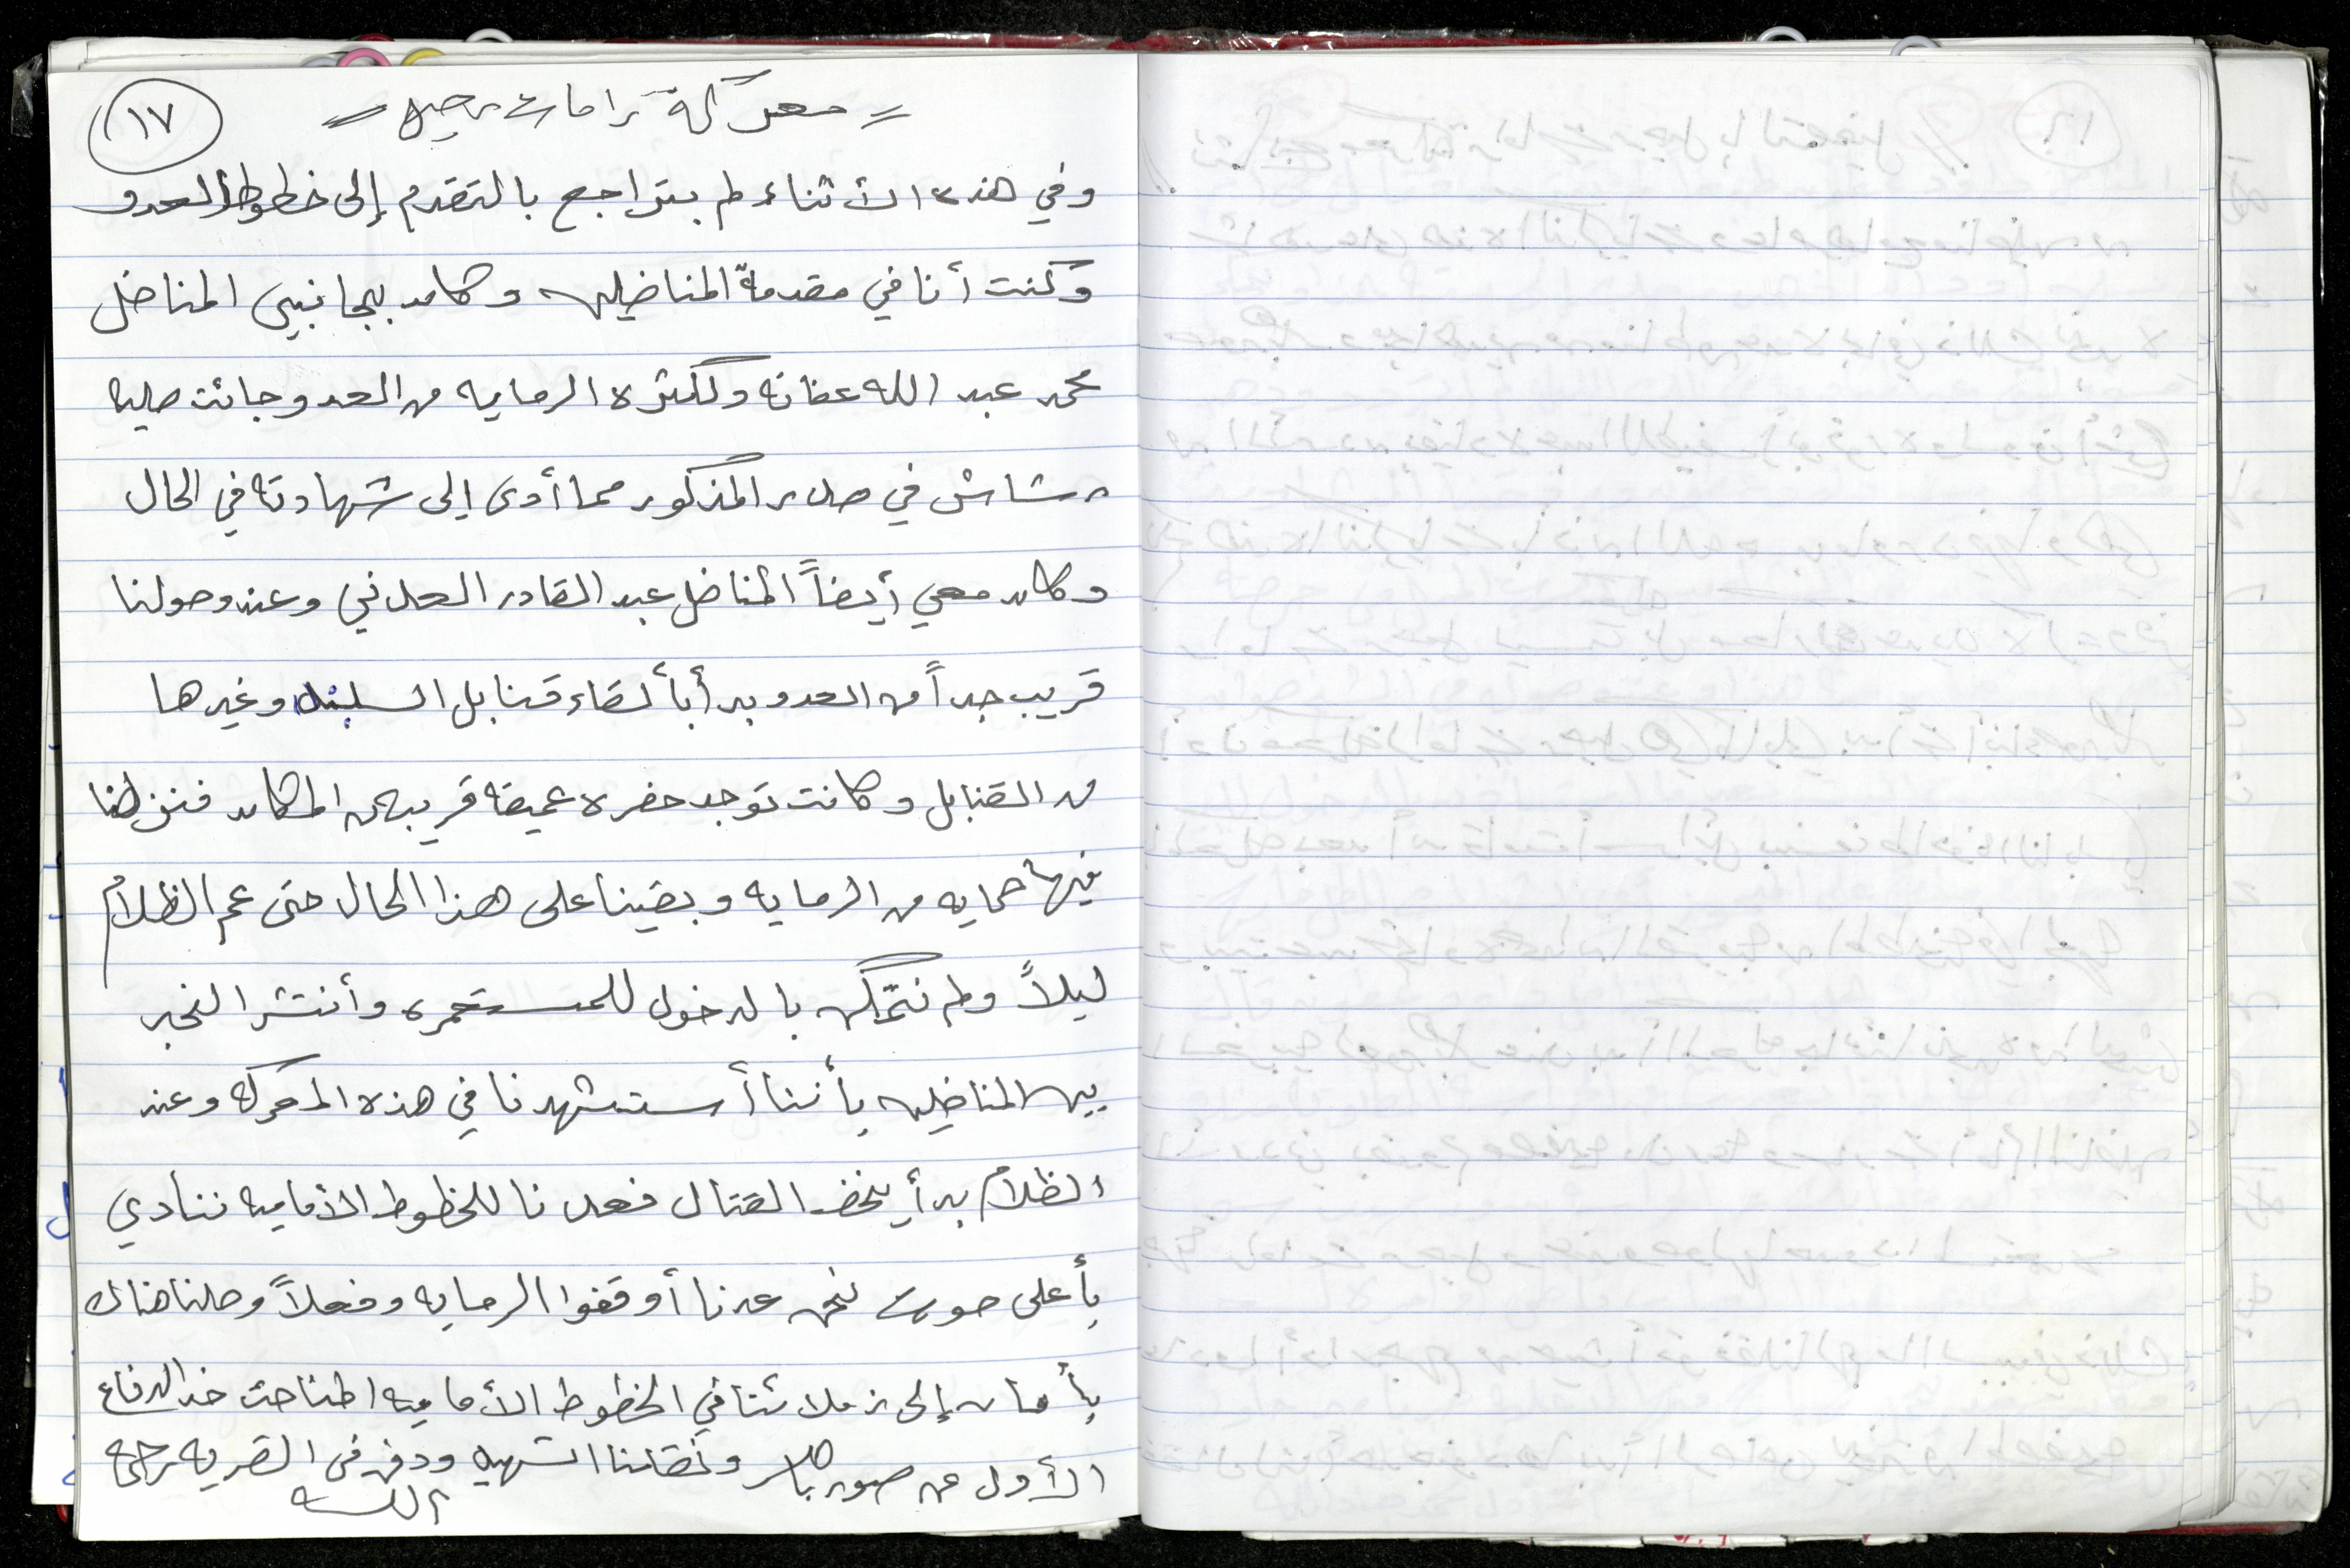 ١٧
= معركة رامات رحيل =
وفي هذه الأثناء لم يتراجع بالتقدم إلى خطوط العدو
وكنت أنا في مقدمة المناضلين وكان بجانبي المناضل
محمد عبد الله عفانه ولكثرة الرمايه من العدو جائت صليه
رشاش في صدر المذكور مما أدى إلى شهادته في الحال
وكان معي أيضاً المناضل عبد القادر العدني وعند وصولنا
قريب جداً من العدو بدأ بألقاء قنابل وغيرها
من القنابل وكانت توجد حفره عميقه قريبه من المكان فنزلنا
فيها حمايه من الرمايه وبقينا على هذا الحال حتى عم الظلام
ليلاً ولم نتمكن بالدخول للمستعمره وأنتشر الخبر
بين المناضلين بأننا أستشهدنا في هذه المعركه وعند
الظلام بدأ يخف القتال فعدنا للخطوط الأماميه ننادي
بأعلى صوت نحن عدنا أوقفوا الرمايه وفعلاً وصلنا هناك
بأمان إلى زملائنا في الخطوط الأماميه اطناحت خد الدفاع
الأول عن صور باهر ونقلنا الشهيد ودفن في القريه رحمه
الله